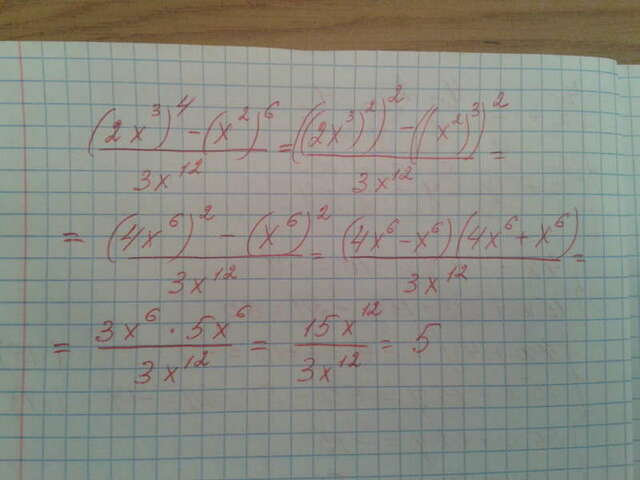 \frac{(2x^3)^4-(x^2)^6}{3x^{12}} = \frac{((2x^3)^2)^2-((x^2)^3)^2}{3x^{12}} =
= \frac{(4x^6)^2-(x^6)^2}{3x^{12}} = \frac{(4x^6-x^6)(4x^6+x^6)}{3x^{12}} =
= \frac{3x^6 \cdot 5x^6}{3x^{12}} = \frac{15x^{12}}{3x^{12}} = 5